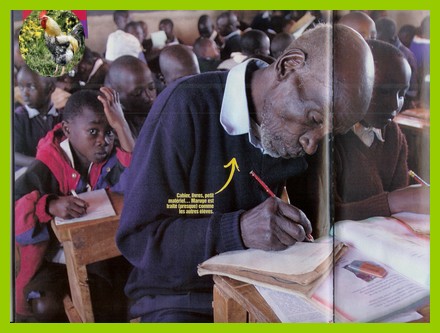 Cahier, livres, petit
matériel... Maruge est
traité (presque) comme
les autres élèves.